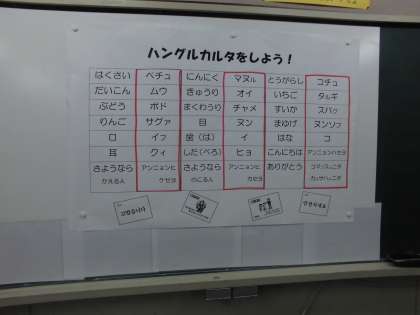 ハングルカルタをしよう！
はくさい ペチュ にんにく マヌル とうがらし コチュ
だいこん ムウ きゅうり オイ いちご タルギ
ぶどう ポド まくわうり チャメ すいか スバク
りんご サグァ 目 ヌン まゆげ ヌンソプ
口 イプ 歯（は） イ はな コ
耳 クィ しだ（べろ） ヒョ こんにちは アンニョンハセヨ
さようなら アンニョンヒ さようなら アンニョンヒ ありがとう
かえる人 ケセヨ のこる人 カセヨ